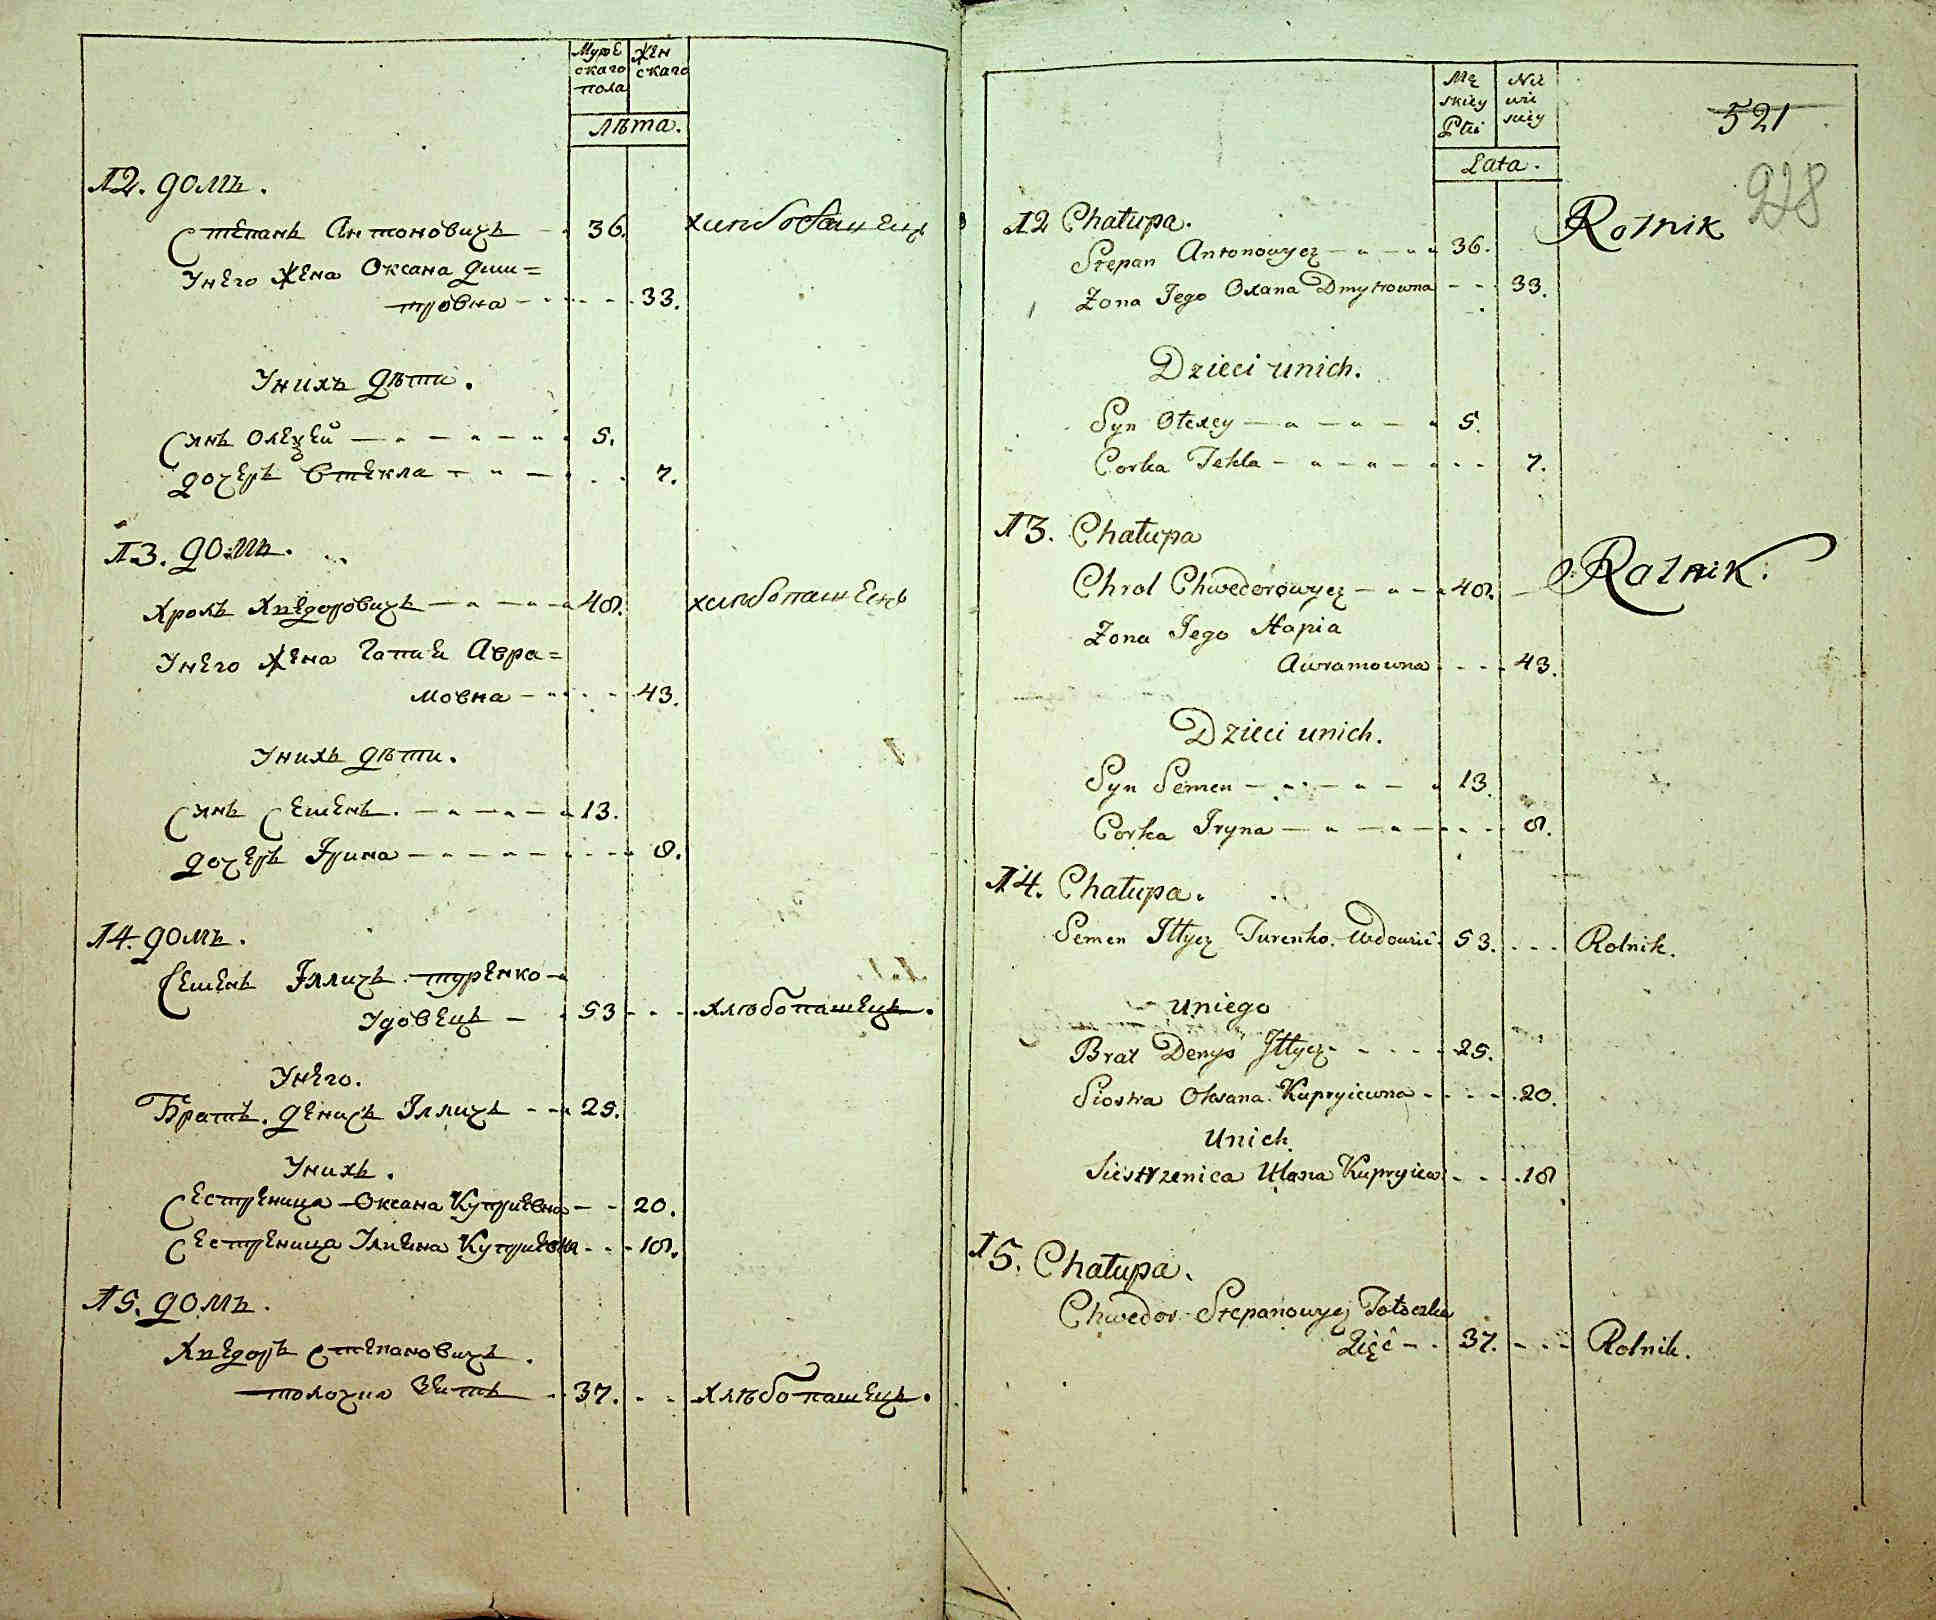 Мужескаго пола
Женскаго
лѣта.
12. домъ.
Степанъ Антоновичъ 36. хлибопашецъ
Унего жена Оксана Дми=
тровна 33.
Унихъ дѣти.
Синъ Олецѣй 5.
Дочеръ Втекла 7.
13. домъ.
Хролъ Хведоровичъ 48. хлибопашецъ
Унего жена Гапия Авра=
мовна 43.
Унихъ дѣти.
Синъ Семенъ 13.
Дочеръ Ірина 8.
14. домъ.
Семенъ Ілличъ туренко
Удовецъ 53 хлѣбопашецъ.
Унего.
Братъ. Денисъ Ілличъ 25.
Унихъ.
Сестреница Оксана Куприевна 20.
Сестреница Улиена Куприевна 18.
15. домъ.
Хведоръ степановичъ
толочка зеть 37. хлѣбопашецъ.
Męskiey Płci
Niewieściey
Lata.
521
928
12 Chałupa.
Stepan Antonowycz 36. Rolnik
Żona Jego Oxana Dmytrowna 33.
Dzieci unich.
Syn Ołexey 5.
Corka Tekla 7.
13. Chałupa
Chrol Chwedorowycz 48. Rolnik.
Żona Jego Hapia
Awramowna 43.
Dzieci unich.
Syn Semen 13.
Corka Iryna 8.
14. Chałupa.
Semen Iłłycz Turenko Wdowiec 53. Rolnik.
uniego
Brat Denys Iłłycz 25.
Siostra Oksana Kupryiewna 20.
Unich
Siestrzenica Ulana Kupryiew 18
15. Chałupa.
Chwedor Stepanowycz Tołoczka
Zięć 37. Rolnik.